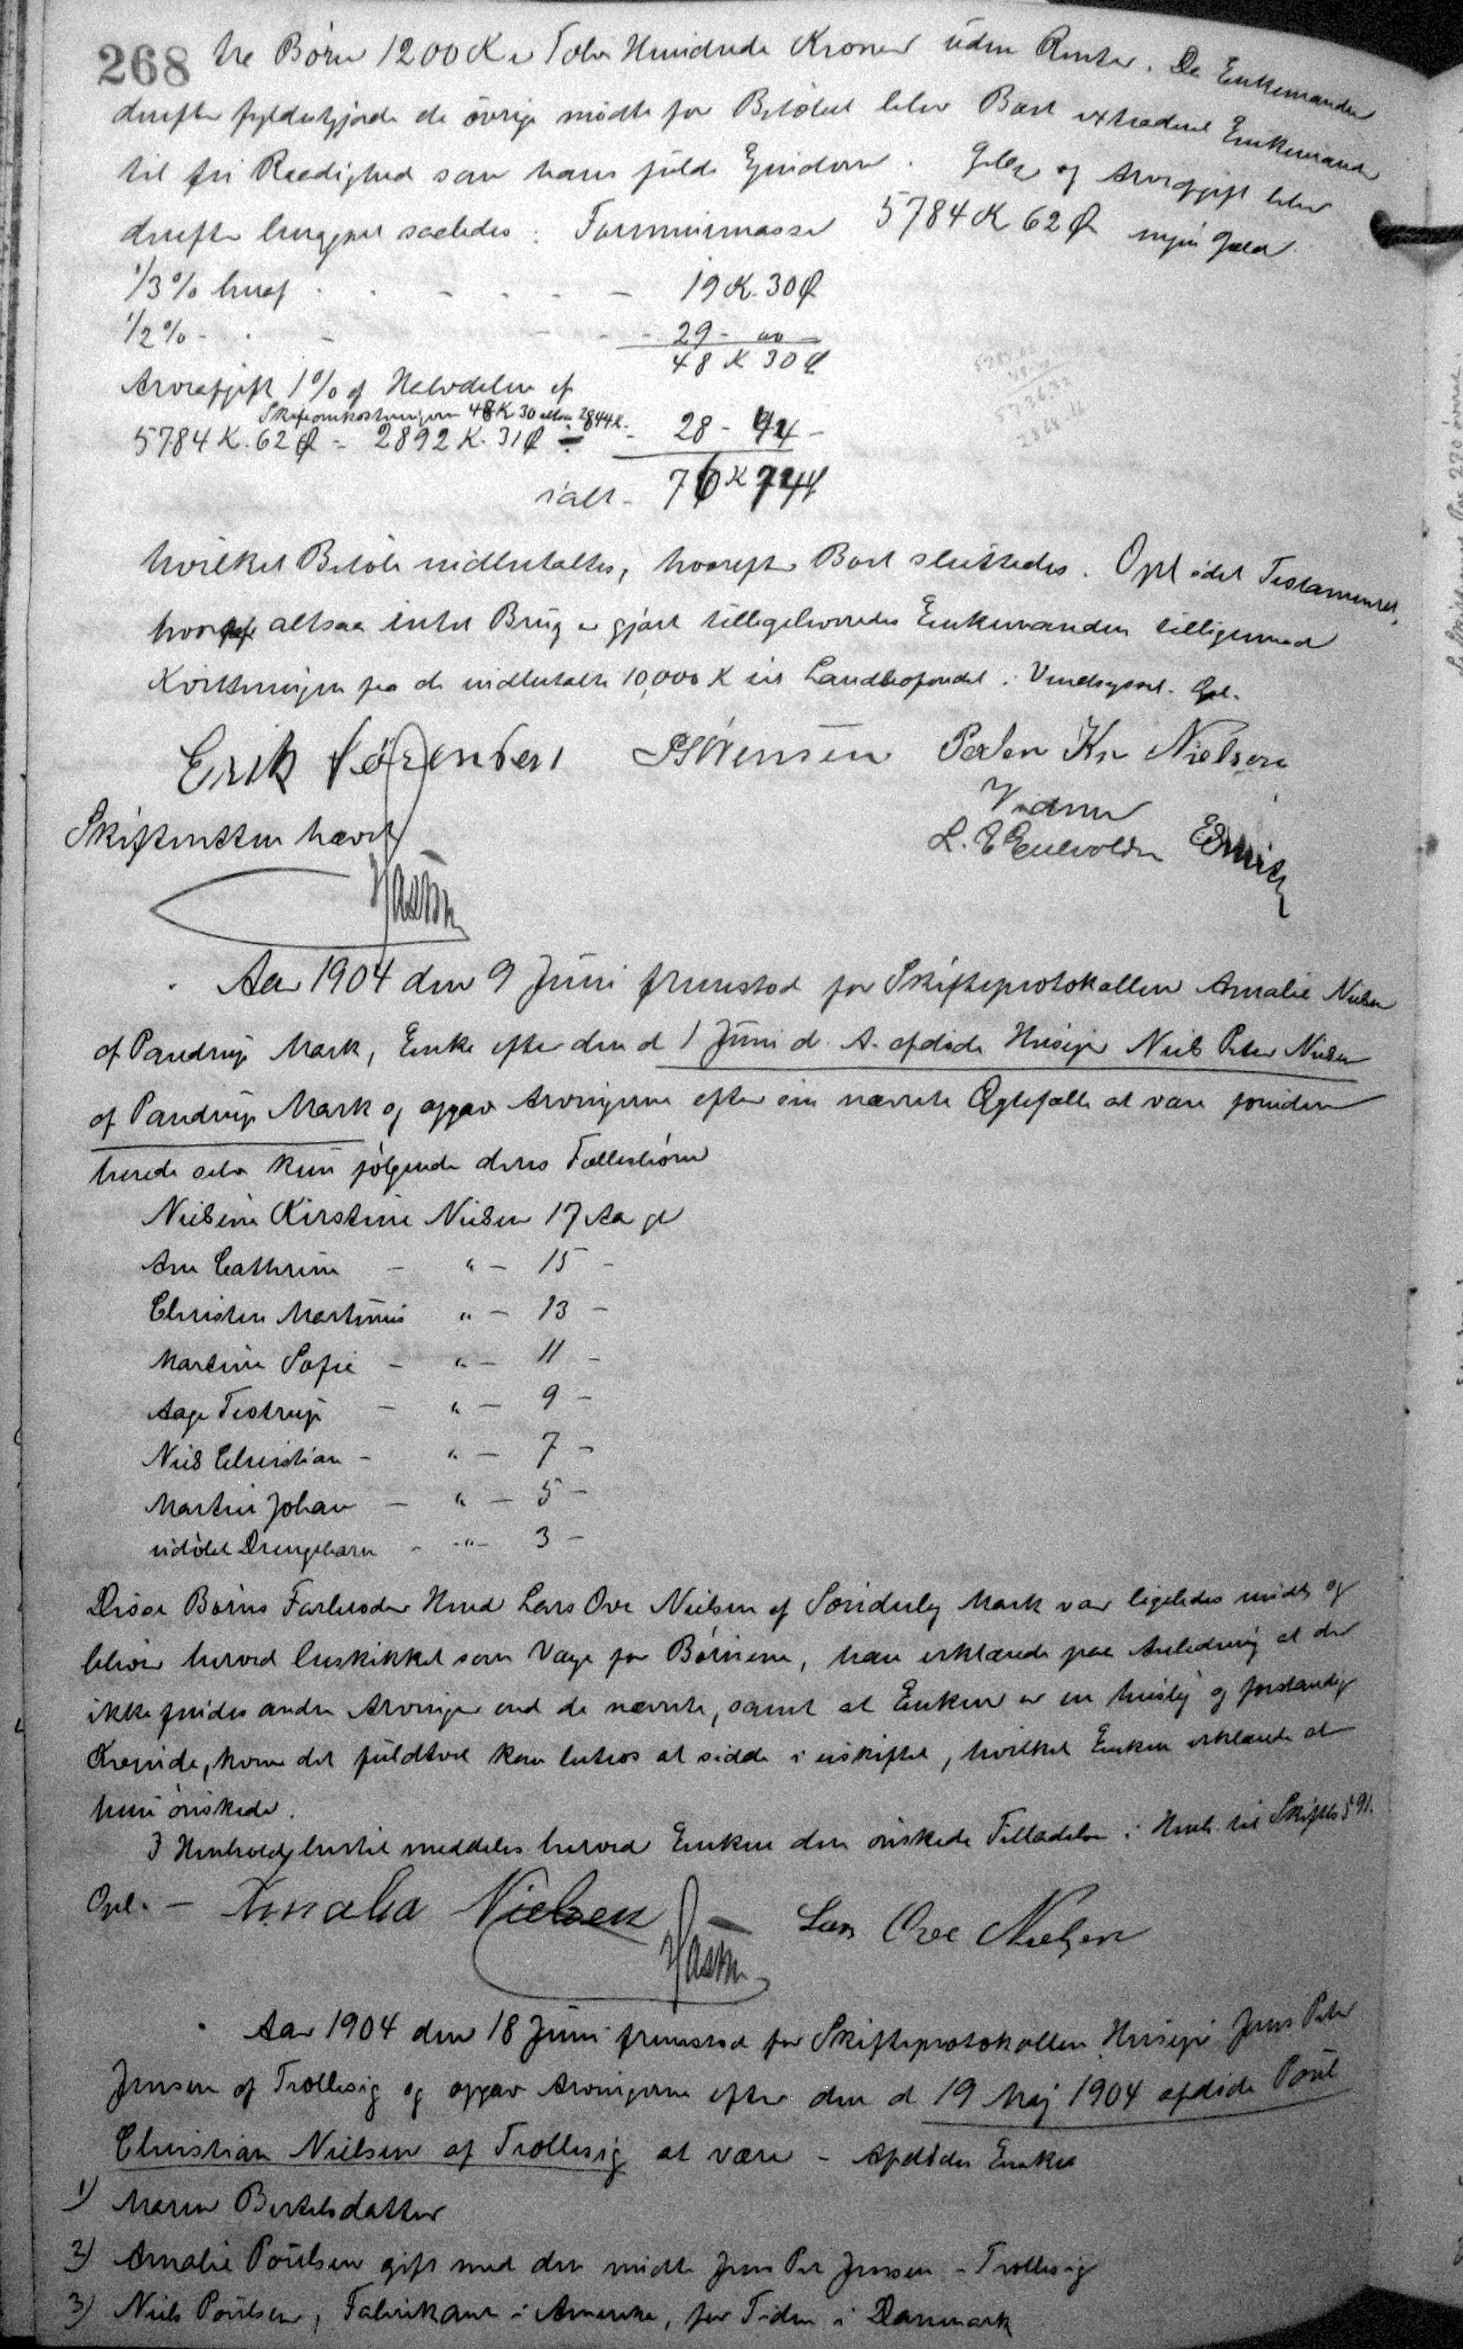 268 tre Børn 1200 K = Tolv Hundrede Kroner uden Renter. Da Enkemanden
derefter fyldestgjorde de øvrige mødte for Beløbet blev Boet extraderet Enkemanden
til fri Raadighed som hans fulde Ejendom. Geby og Arveafgift blev
derefter beregnet saaledes: Formuemasse 5784 K 62 Ø ingen Gæld.
1/3 % heraf - - - - - 19 K. 30 Ø
1/2 % - - - - - 29 - 00
48 K 30 Ø
Arveafgift 1 % af Halvdelen af
Skifteomkostningerne 48 K 30 altsaa 2844 K.
5784 K. 62 Ø = 2892 K. 31 Ø ÷ - 28 - 44 -
ialt - 76 K 74 Ø
hvilket Beløb indbetaltes, hvorefter Boet sluttedes. Opl ødet Testamentet,
hvoraf altsaa intet Brug er gjort tilbageleveredes Enkemanden tilligemed
Kvitteringen for de indbetalte 10,000 K til Landbofondet i Vendsyssel. Opl.
Erik Sørensen PSørensen Peder Kr Nielsen
Vidner
Skifteretten hævet
L. E Eenvoldsen
Aar 1904 den 9 Juni fremstod for Skifteprotokollen Amalie Nielsen
af Pandrup Mark, Enke efter den d 1 Juni d. A. afdøde Husejer Niels Peter Nielsen
af Pandrup Mark og opgav Arvingerne efter sin nævnte Ægtefælle at være foruden
hende selv kun følgende deres Fællesbørn
Nielsine Kirstine Nielsen 17 Aar gl
Ane Cathrine - " - 15 -
Christen Martinus " - 13 -
Martine Sofie - " - 11 -
Aage Testrup - " - 9 -
Niels Christian - " - 7 -
Martin Johan - " - 5 -
udøbt Drengebarn - " - 3 -
Disse Børns Farbroder Hmd Lars Ove Nielsen af Sønderby Mark var ligeledes mødt og
blev herved beskikket som Værge for Børnene, han erklærede paa Anledning at der
ikke findes andre Arvinger end de nævnte, samt at Enken er en huslig og forstandig
Kvinde, hvem det fuldtvel kan betros at sidde i uskiftet, hvilket Enken erklærede at
hun ønskede.
I Henhold hertil meddeles herved Enken den ønskede Tilladelse i Henh. til Skiftel § 91.
Opl. - Amalia Nielsen Lars Ove Nielsen
Aar 1904 den 18 Juni fremstod for Skifteprotokollen Husejer Jens Peter
Jensen af Trollesig og opgav Arvingerne efter den d 19 Maj 1904 afdøde Poul
Christian Nielsen af Trollesig at være - Afdødes Enke
1) Maren Bertelsdatter
2) Amalie Poulsen gift med den mødte Jens Pet Jensen - Trollesig
3) Niels Poulsen, Fabrikant i Amerika, for Tiden i Danmark